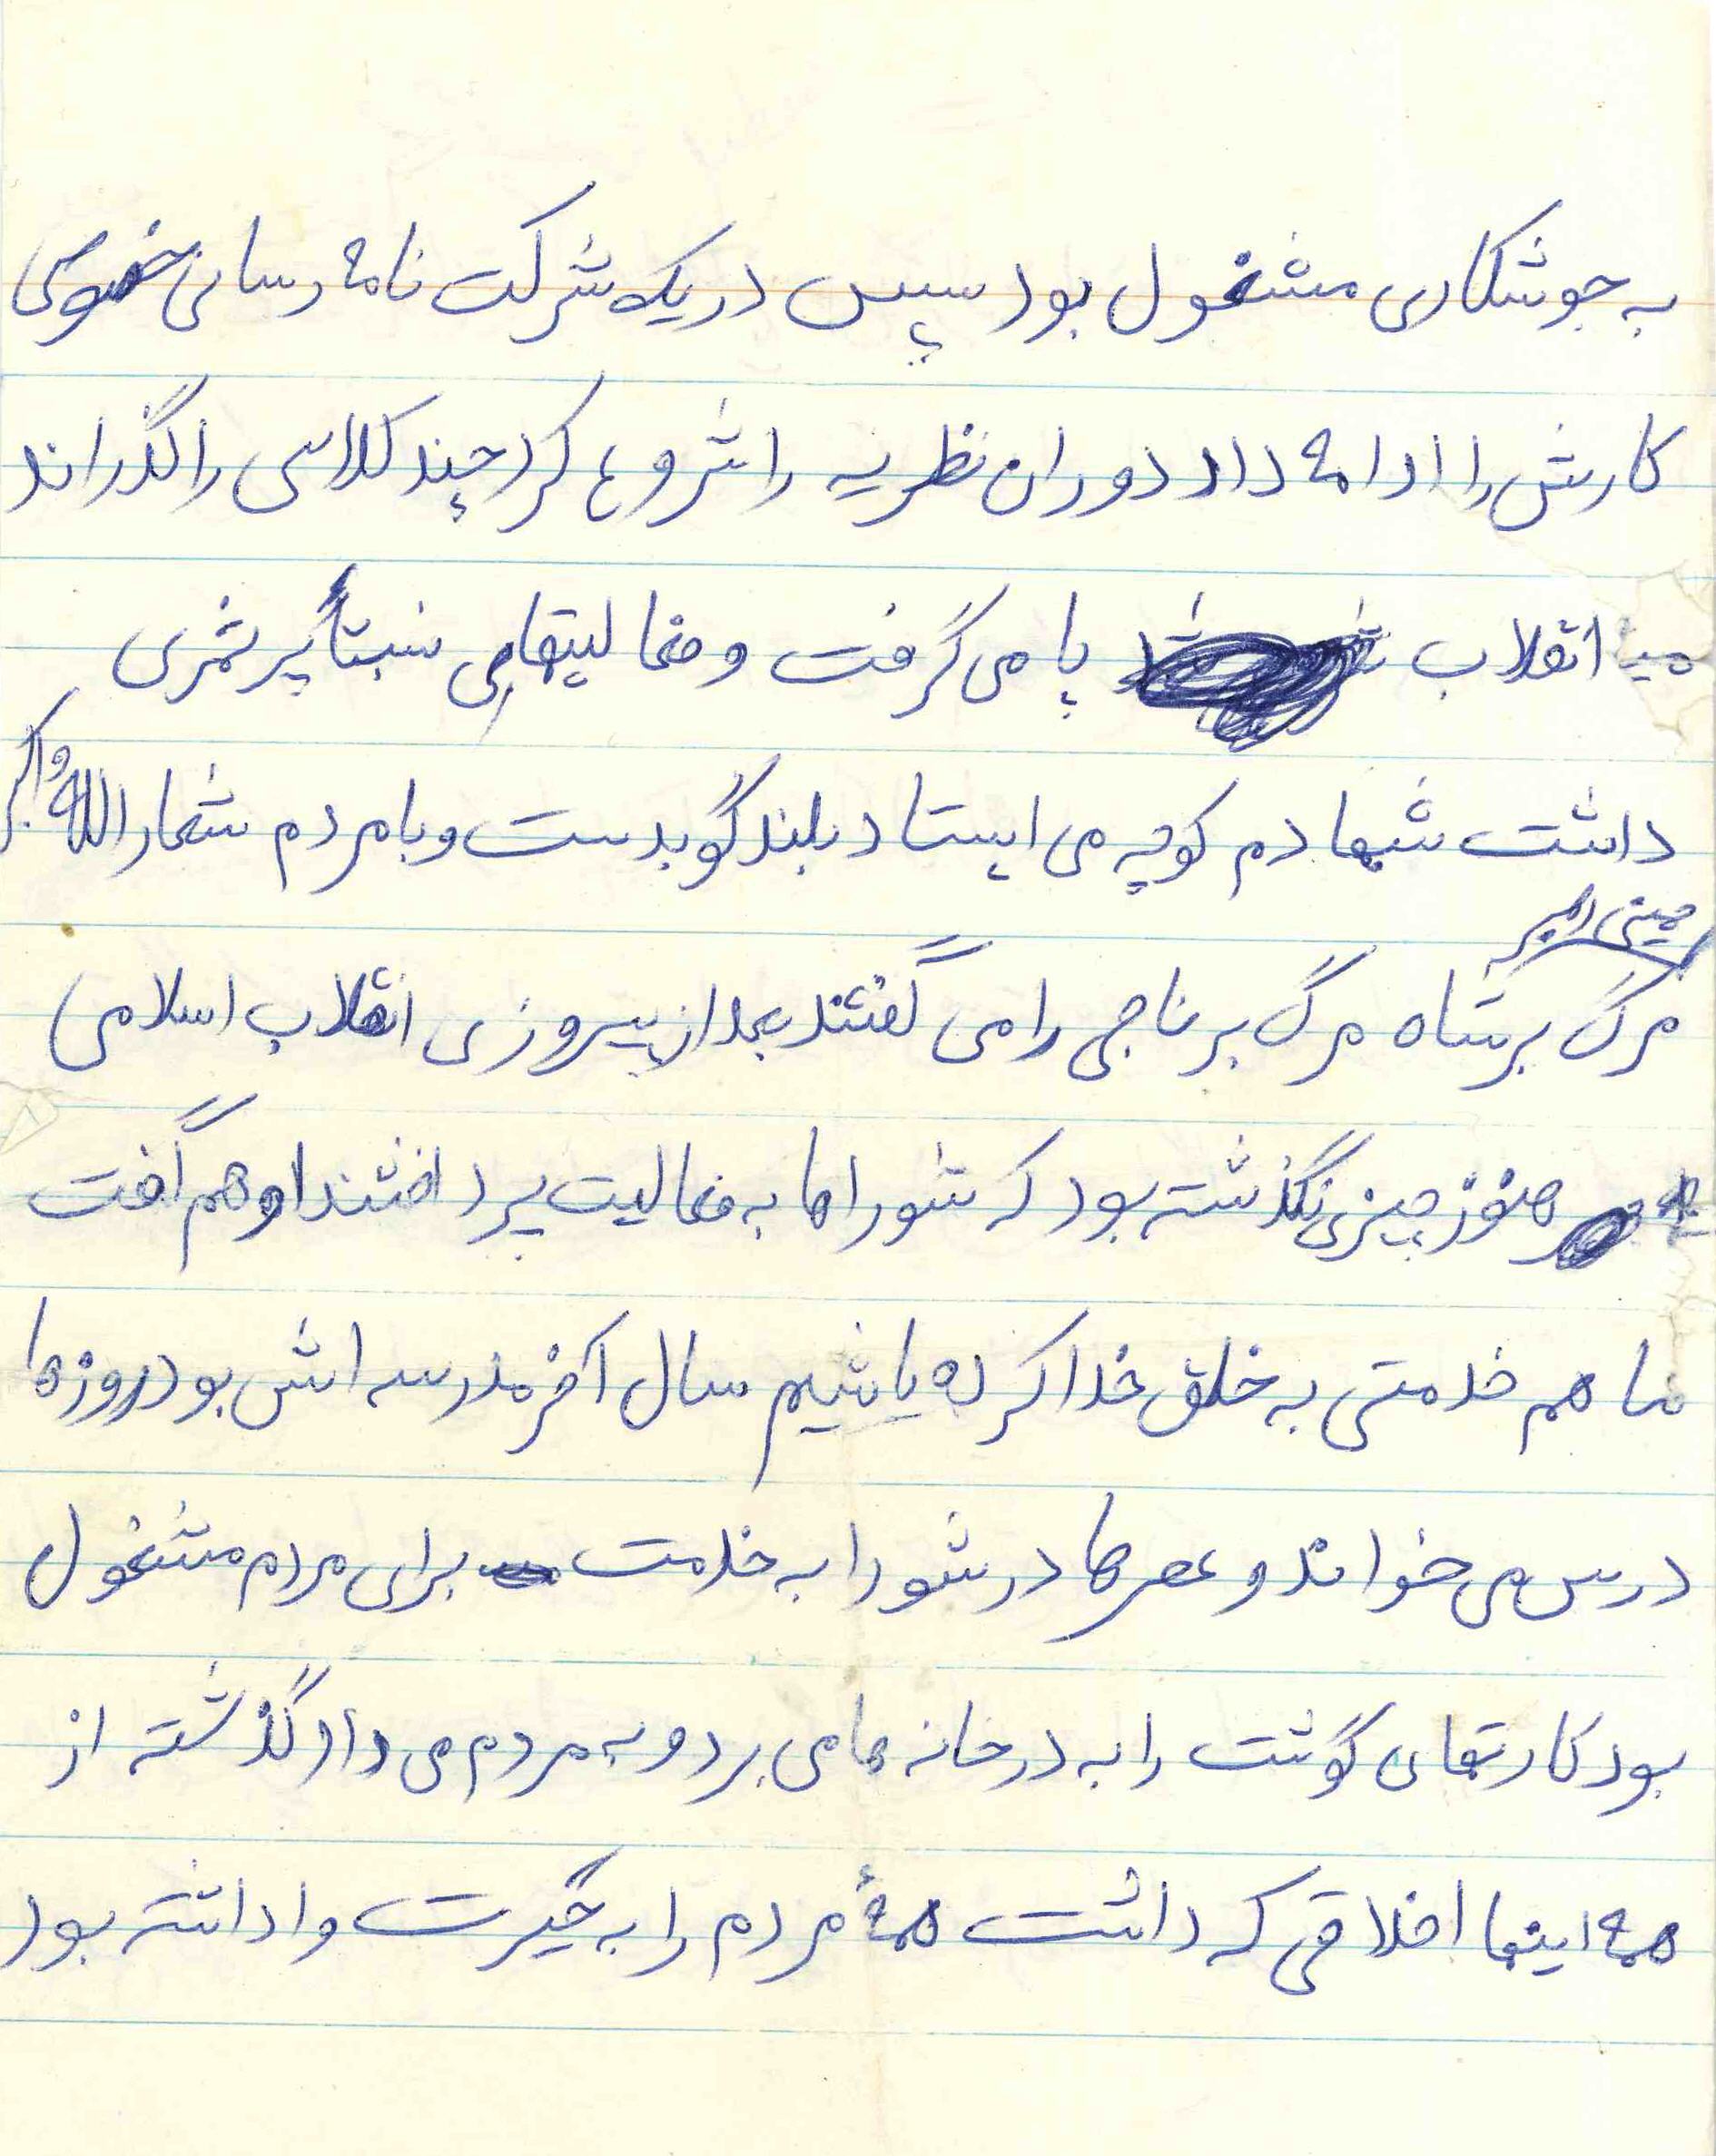 به جوشکاری مشغول بود سپس در یک شرکت نامه رسانی خصوصی
کارش را ادامه داد دوران نظریه را شروع کرد چند کلاسی را گذراند
انقلاب پا می گرفت و فعالیتهای نسبتاً پر ثمری
داشت شبها دم کوچه می ایستاد بلندگو بدست و با مردم شعار الله و اکبر
خمینی رهبر
مرگ بر شاه مرگ بر ناجی را می گفتند بعد از پیروزی انقلاب اسلامی
هنوز چیزی نگذشته بود که شوراها به فعالیت پرداختند او هم گفت
ما هم خدمتی به خلق خدا کرده باشیم سال آخر مدرسه اش بود روزها
درس می خواند و عصرها در شورا به خدمت برای مردم مشغول
بود کارتهای گوشت را به در خانه ها می برد و به مردم می داد گذشته از
همه اینها اخلاقی که داشت همهٔ مردم را به حیرت وا داشته بود